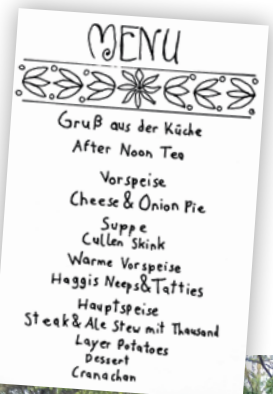 MENU
Gruß aus der Küche
After Noon Tea
Vorspeise
Cheese & Onion Pie
Suppe
Cullen Skink
Warme Vorspeise
Haggis Neeps & Tatties
Hauptspeise
Steak & Ale Stew mit Thausand
Layer Potatoes
Dessert
Cranachan